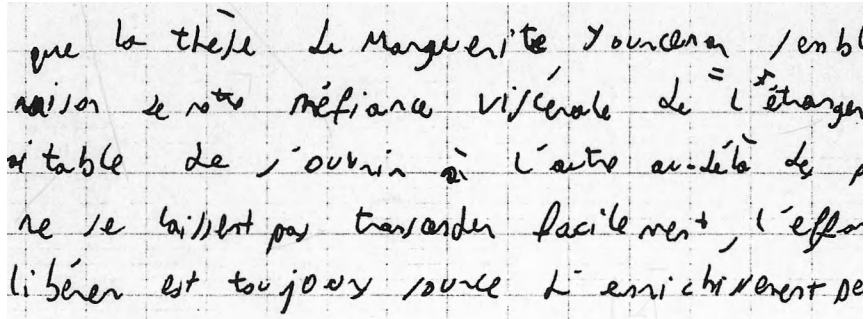 que la thèse de Marguerite Yourcenar sembl
raison de notre méfiance viscérale de l'étranger
itable de s'ouvrir à l'autre au-delà des p
ne se laissent pas transcender facilement, l'effor
libérer est toujours source d'enrichissement pe